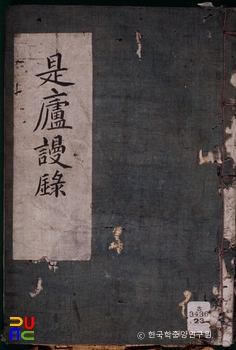 是廬謾錄
3436
23
PUAC
ⓒ 한국학중앙연구원